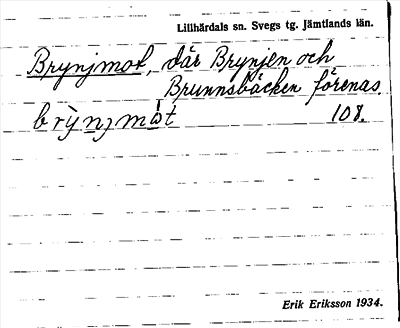 Lillhärdals sn. Svegs tg. Jämtlands län.
Brynjmot, där Brynjen och
Brunnsbäcken förenas.
brỳnjmωt 108.
Erik Eriksson 1934.